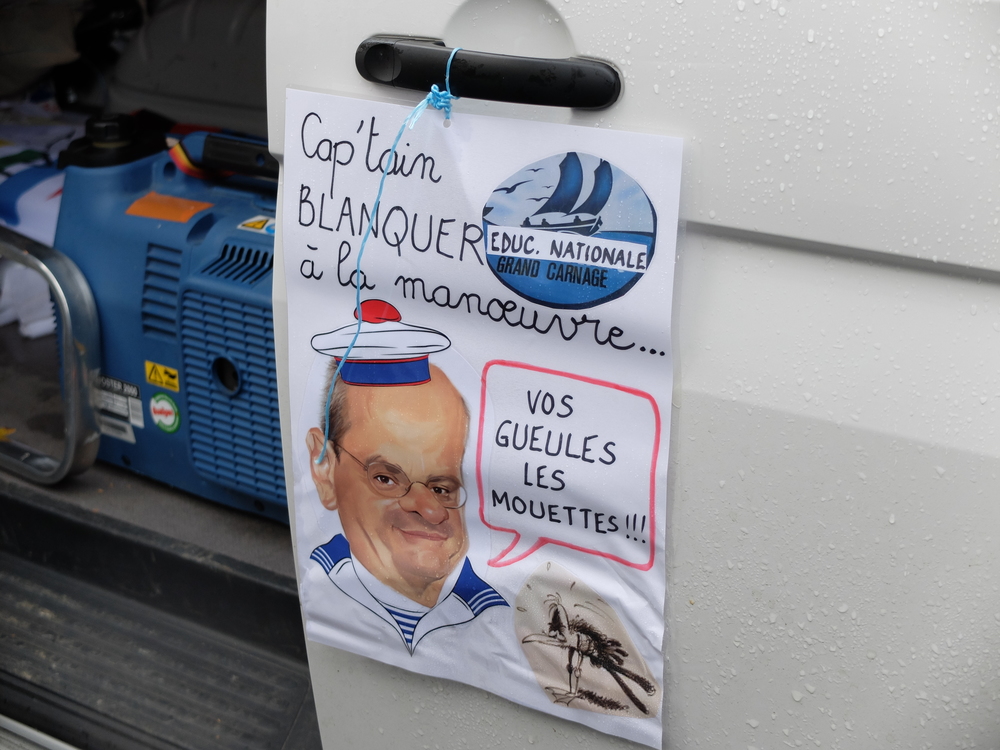 Cap'tain
BLANQUER
à la manœuvre...
EDUC. NATIONALE
GRAND CARNAGE
VOS
GUEULES
LES
MOUETTES!!!